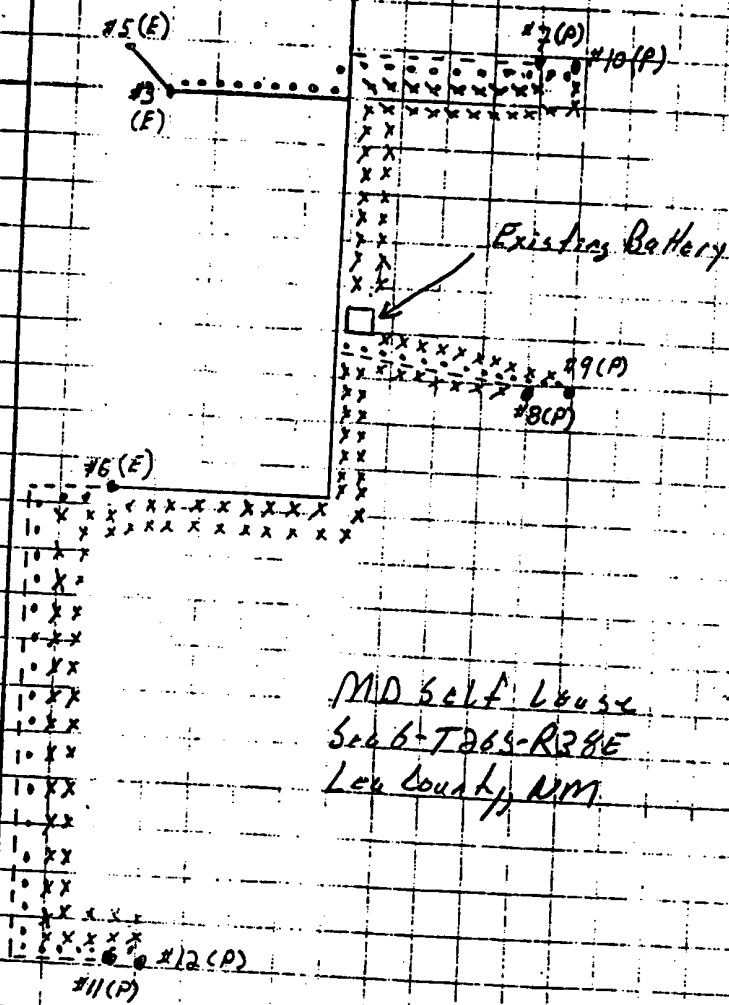 #5(E)
#7(P)
#10(P)
#3
(E)
Existing Battery
#9(P)
#8(P)
#6(E)
MD Self Lease
Sec 6-T26S-R38E
Lea County, NM
#12(P)
#11(P)